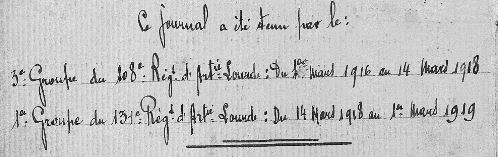 Ce journal a été tenu par le :
3e Groupe du 108e Régt d'Artie Lourde : Du 1er Mars 1916 au 14 Mars 1918
1er Groupe du 131e Régt d'Artie Lourde : Du 14 Mars 1918 au 1er Mars 1919